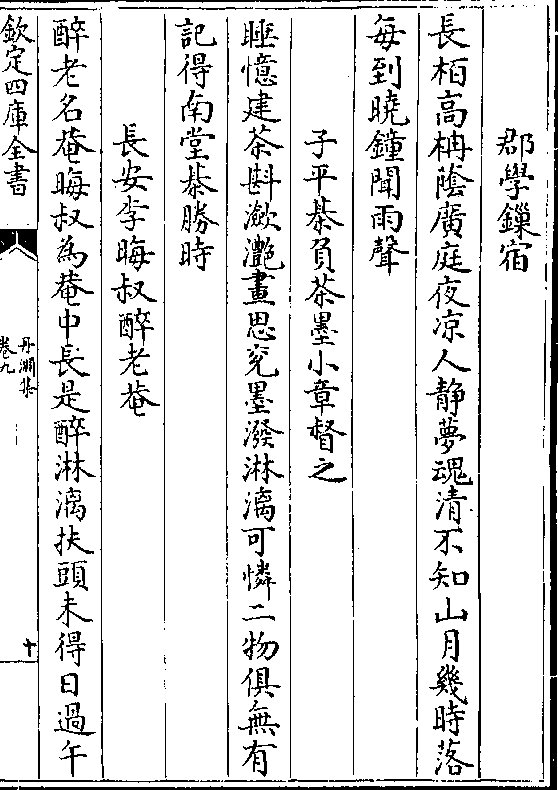 郡學鏁宿
長栢高柟蔭廣庭夜凉人静夢魂清不知山月幾時落
每到曉鐘聞雨聲
子平棊負茶墨小章督之
睡憶建茶斟瀲灔畫思兖墨潑淋漓可憐二物俱無有
記得南堂棊勝時
長安李晦叔醉老菴
醉老名菴晦叔為菴中長是醉淋漓扶頭未得日過午
欽定四庫全書
丹淵集
卷九
十